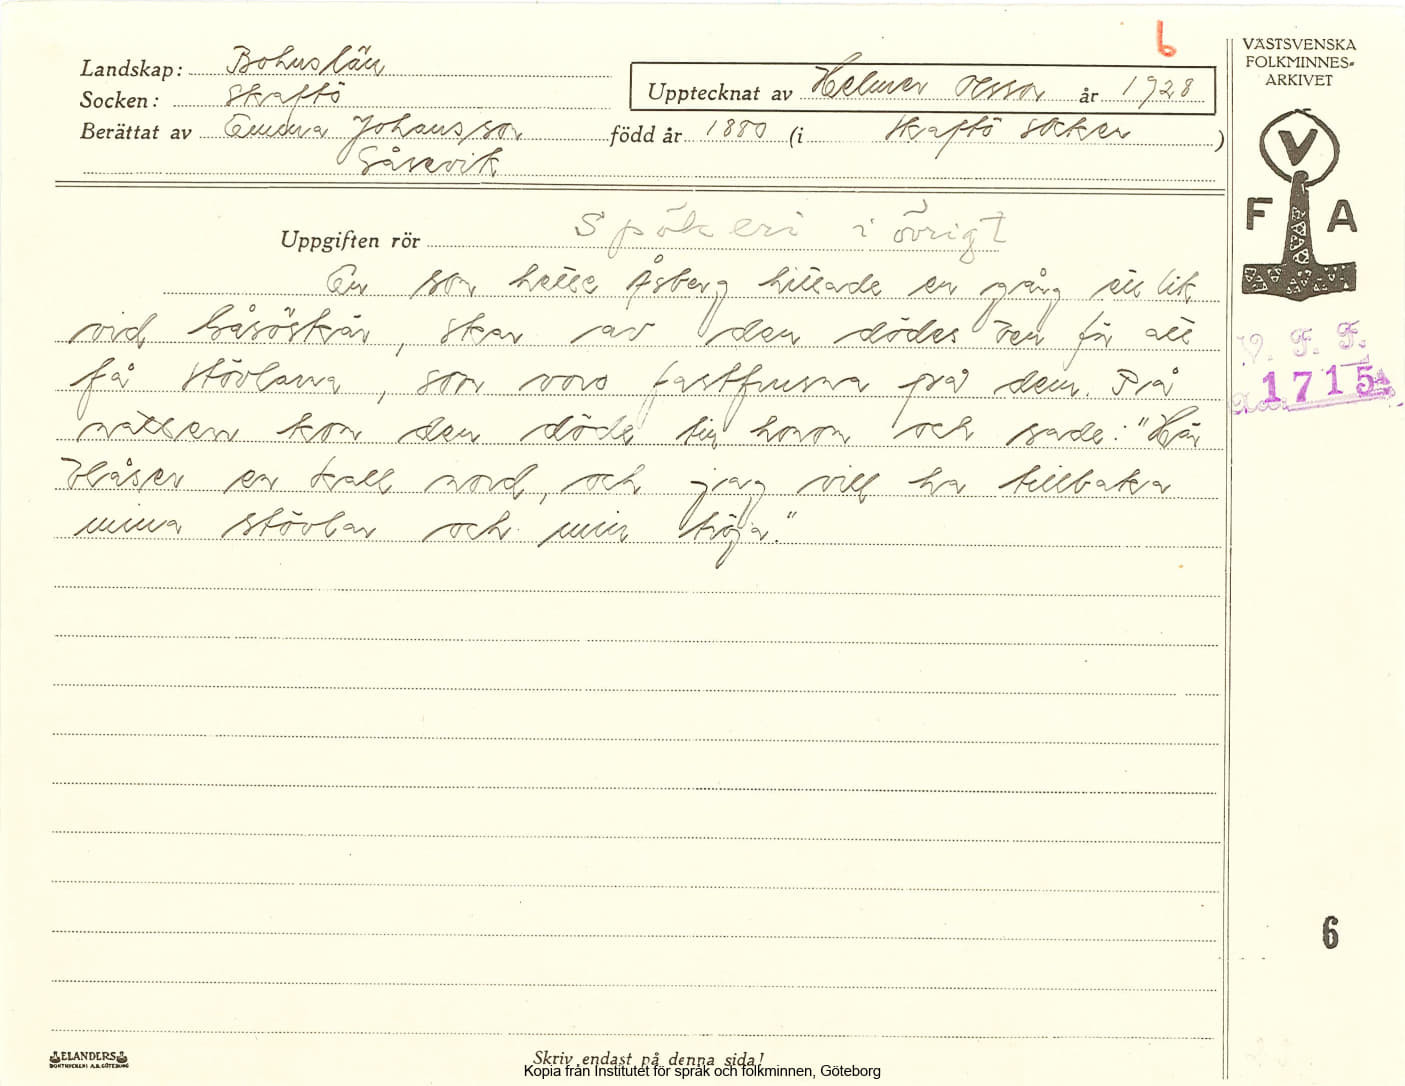 6
Landskap: Bohuslän
Socken: Skaftö
Upptecknat av Helmer Olsson år 1928
Berättat av Emma Johansson född år 1880 (i Skaftö socken)
Gåsevik
VÄSTSVENSKA
FOLKMINNES-
ARKIVET
V
F A
Uppgiften rör Spökeri i övrigt
En son hette Åsberg hittade en gång ett lik
vid Gåsöskär, skar av den dödes ben för att
få stövlarna, som voro fastfrusna på dem. På
natten kom den döde till honom och sade: "Här
blåser en kall nord, och jag vill ha tillbaka
mina stövlar och min tröja."
V. F. F.
1715
6
ELANDERS
BOKTRYCKERI A.B. GÖTEBORG
Skriv endast på denna sida!
Kopia från Institutet för språk och folkminnen, Göteborg